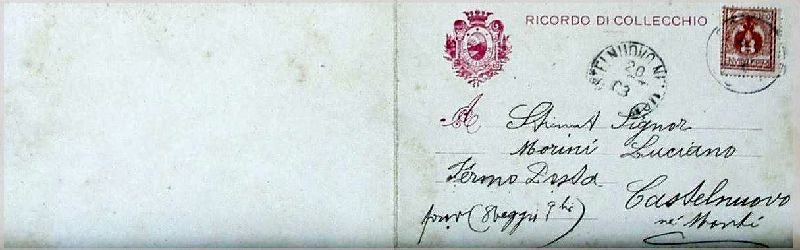 RICORDO DI COLLECCHIO
CASTELNUOVO NE' MONTI
20
03
A Stimat Signor
Morini Luciano
Fermo Posta
Castelnuovo
né Monti
(Reggio